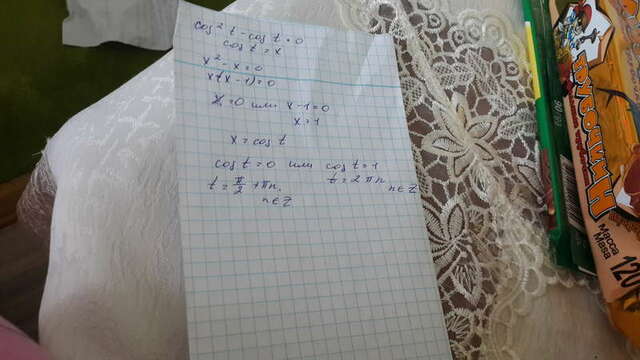 Нильпозавр
Масса
Маса
120
cos² t - cos t = 0
cos t = x
x² - x = 0
x(x - 1) = 0
x = 0 или x - 1 = 0
x = 1
x = cos t
cos t = 0 или cos t = 1
t = π/2 + πn, t = 2πn
n ∈ Z n ∈ Z